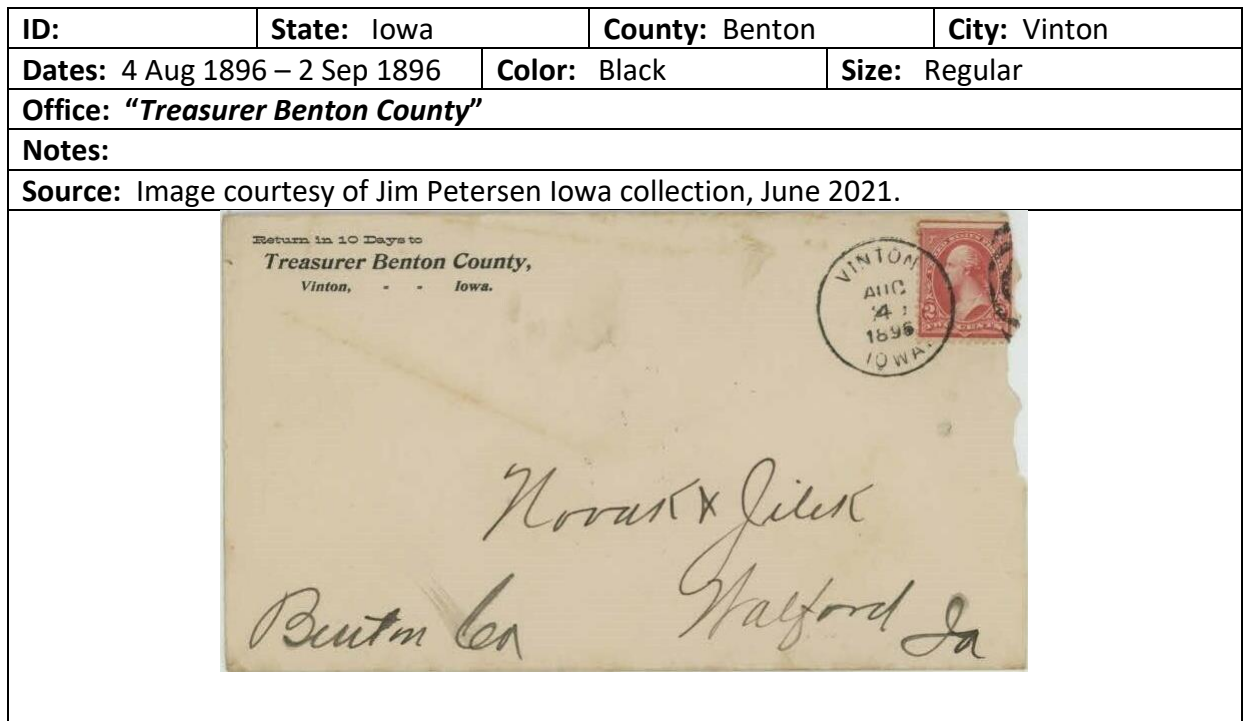 ID: State: Iowa County: Benton City: Vinton
Dates: 4 Aug 1896 – 2 Sep 1896 Color: Black Size: Regular
Office: “Treasurer Benton County”
Notes:
Source: Image courtesy of Jim Petersen Iowa collection, June 2021.
Return in 10 Days to
Treasurer Benton County,
Vinton, - - Iowa.
VINTON
AUG
4
1896
IOWA.
2
Novak & Jilek
Walford Ia
Benton Co